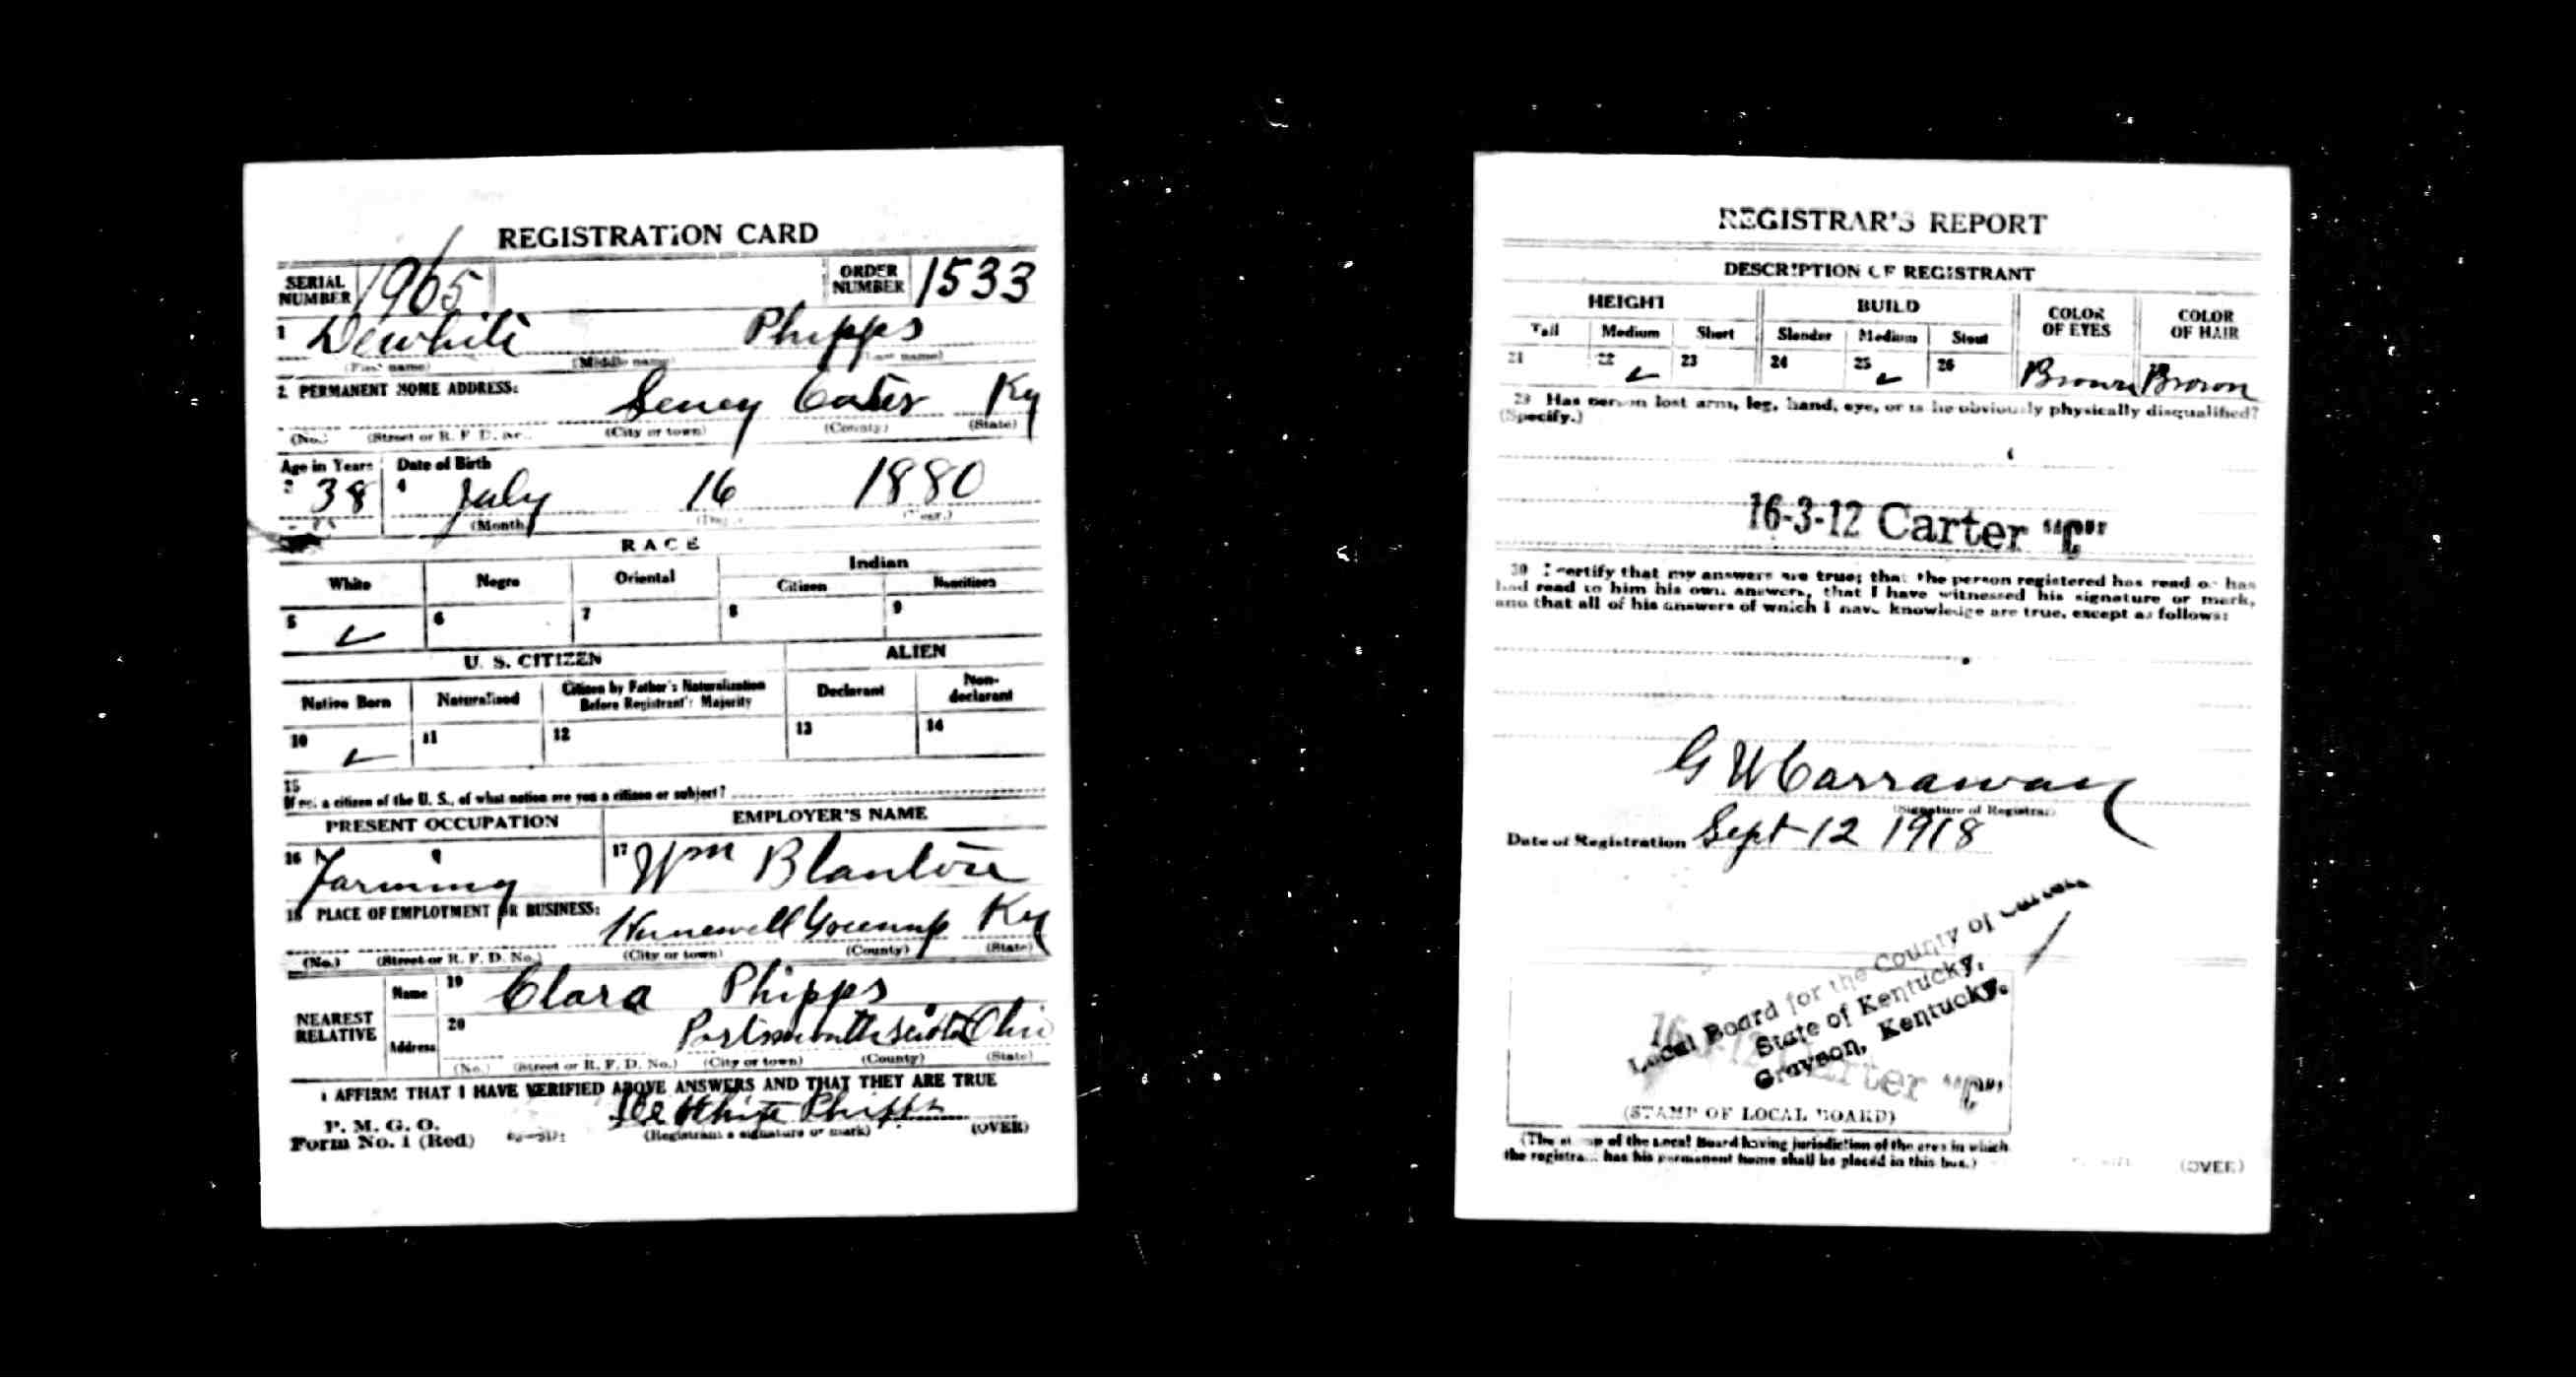 REGISTRATION CARD
SERIAL NUMBER 1965 ORDER NUMBER 1533
1 Dewhite Phipps
(First name) (Middle name) (Last name)
2 PERMANENT HOME ADDRESS:
Seney Carter Ky
(No.) (Street or R. F. D. No.) (City or town) (County) (State)
Age in Years Date of Birth
3 38 4 July 16 1880
(Month) (Day) (Year.)
RACE
White Negro Oriental Indian
Citizen Noncitizen
5 ✓ 6 7 8 9
U. S. CITIZEN ALIEN
Native Born Naturalized Citizen by Father's Naturalization Before Registrant's Majority Declarant Non-declarant
10 ✓ 11 12 13 14
15
If not a citizen of the U. S., of what nation are you a citizen or subject?
PRESENT OCCUPATION EMPLOYER'S NAME
16 Farming 17 Wm Blanton
18 PLACE OF EMPLOYMENT OR BUSINESS:
Hunnewell Greenup Ky
(No.) (Street or R. F. D. No.) (City or town) (County) (State)
NEAREST RELATIVE Name 19 Clara Phipps
Address 20 Portsmouth Scioto Ohio
(No.) (Street or R. F. D. No.) (City or town) (County) (State)
I AFFIRM THAT I HAVE VERIFIED ABOVE ANSWERS AND THAT THEY ARE TRUE
P. M. G. O.
Form No. 1 (Red) De White Phipps
(Registrant's signature or mark) (OVER)
REGISTRAR'S REPORT
DESCRIPTION OF REGISTRANT
HEIGHT BUILD COLOR OF EYES COLOR OF HAIR
Tall Medium Short Slender Medium Stout
21 22 ✓ 23 24 25 ✓ 26 Brown Brown
29 Has person lost arm, leg, hand, eye, or is he obviously physically disqualified?
(Specify.)
16-3-12 Carter "C"
30 I certify that my answers are true; that the person registered has read or has
had read to him his own answers, that I have witnessed his signature or mark,
and that all of his answers of which I have knowledge are true, except as follows:
G W Carraway
(Signature of Registrar)
Date of Registration Sept 12 1918
Local Board for the County of Carter
State of Kentucky,
Grayson, Kentucky.
(STAMP OF LOCAL BOARD)
(The stamp of the Local Board having jurisdiction of the area in which
the registrant has his permanent home shall be placed in this box.)
(OVER)